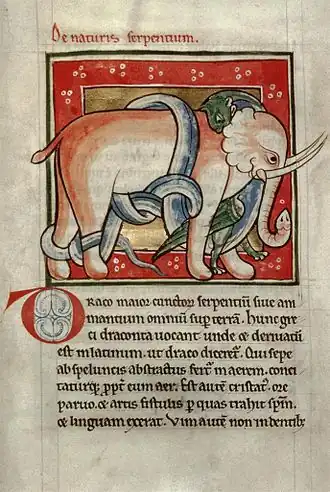 De naturis serpentium.
DRaco maior cunctorꝫ serpentiū siue ani
mantium omniū sup̄ terrā. hunc gre
ci draconta uocant unde ⁊ deriuatū
est in latinum. ut draco diceret᷑. Qui sepe
ab speluncis abstractus fert᷑ in aerem. conci
taturqꝫ ꝓpt̄ eum aer. Est autē cristatꝰ. ore
paruo. ⁊ artis fistulis ꝑ quas trahit sp̄m.
⁊ linguam exerat. Vim autē non in dentibꝫ